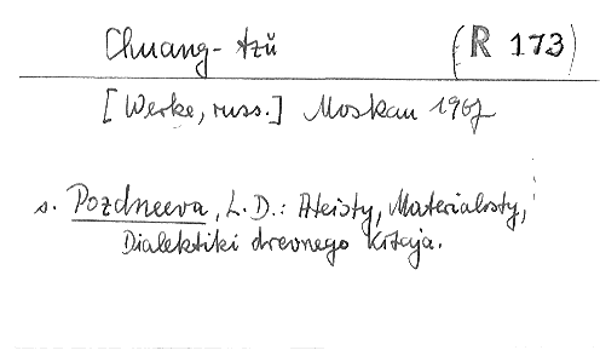 Chuang-tzŭ (R 173)
[Werke, russ.] Moskau 1967
s. Pozdneeva, L. D.: Ateisty, Materialisty,
Dialektiki drevnego Kitaja.